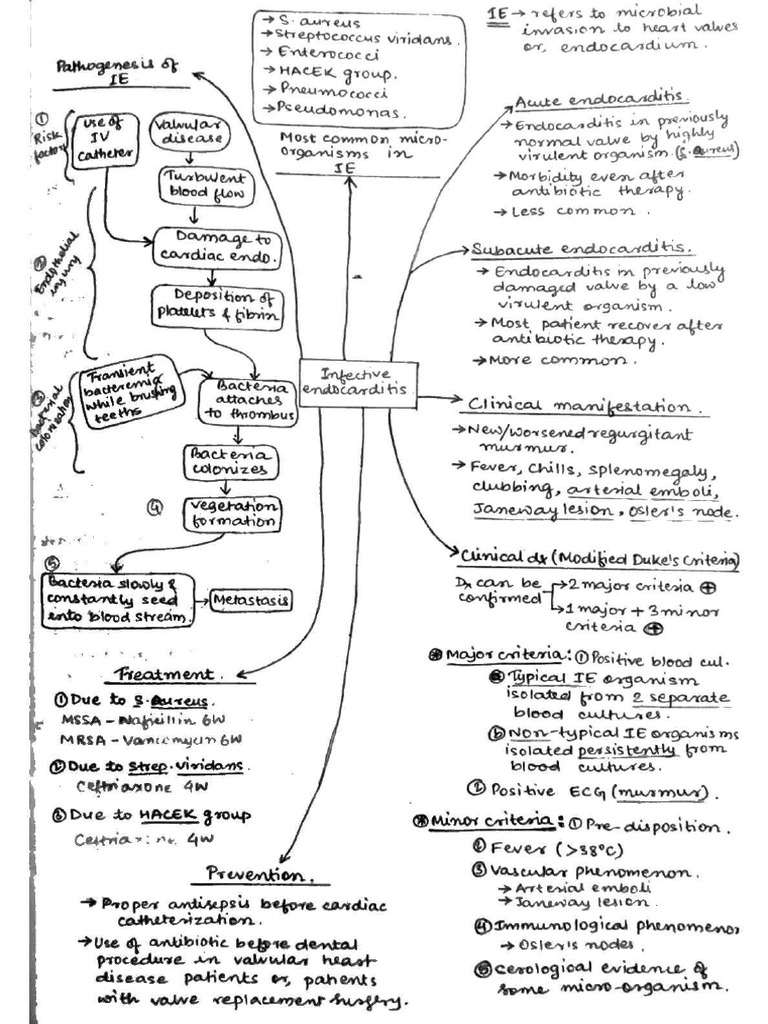 IE → refers to microbial
invasion to heart valves
or, endocardium.
→ S. aureus
→ Streptococcus viridans.
→ Enterococci
→ HACEK group.
→ Pneumococci
→ Pseudomonas.
Most common micro-
organisms in
IE
Pathogenesis of
IE
① Risk factors
Use of
IV
catheter
Valvular
disease
Turbulent
blood flow
② Endothelial
injury
Damage to
cardiac endo.
Deposition of
platelets & fibrin
③ Bacterial
colonization
Transient
bacteremia
while brushing
teeths
Bacteria
attaches
to thrombus
Bacteria
colonizes
④ Vegetation
formation
⑤
Bacteria slowly &
constantly seed
into blood stream.
→ Metastasis
Infective
endocarditis
Acute endocarditis.
→ Endocarditis in previously
normal valve by highly
virulent organism. (S. Aureus)
→ Morbidity even after
antibiotic therapy.
→ Less common.
Subacute endocarditis.
→ Endocarditis in previously
damaged valve by a low
virulent organism.
→ Most patient recover after
antibiotic therapy.
→ More common.
Clinical manifestation.
→ New/worsened regurgitant
murmur.
→ Fever, Chills, splenomegaly,
clubbing, arterial emboli,
Janeway lesion, Osler's node.
Clinical dx (Modified Duke's Criteria)
Dx can be
confirmed
→ 2 major criteria ⊕
→ 1 major + 3 minor
criteria ⊕
⊛ Major criteria: ① Positive blood cul.
ⓐ Typical IE organism
isolated from 2 separate
blood cultures.
ⓑ Non-typical IE organisms
isolated persistently from
blood cultures.
② Positive ECG (murmur).
⊛ Minor criteria: ① Pre-disposition.
② Fever (>38°C)
③ Vascular phenomenon.
→ Arterial emboli
→ Janeway lesion.
④ Immunological phenomenon
→ Osler's nodes.
⑤ Cerological evidence of
some micro-organism.
Treatment.
① Due to S. Aureus.
MSSA - Naficillin 6W
MRSA - Vancomycin 6W
② Due to Strep. Viridans.
Ceftriaxone 4W
③ Due to HACEK group
4W
Prevention.
→ Proper antisepsis before cardiac
catheterization.
→ Use of antibiotic before dental
procedure in valvular heart
disease patients or, patients
with valve replacement surgery.